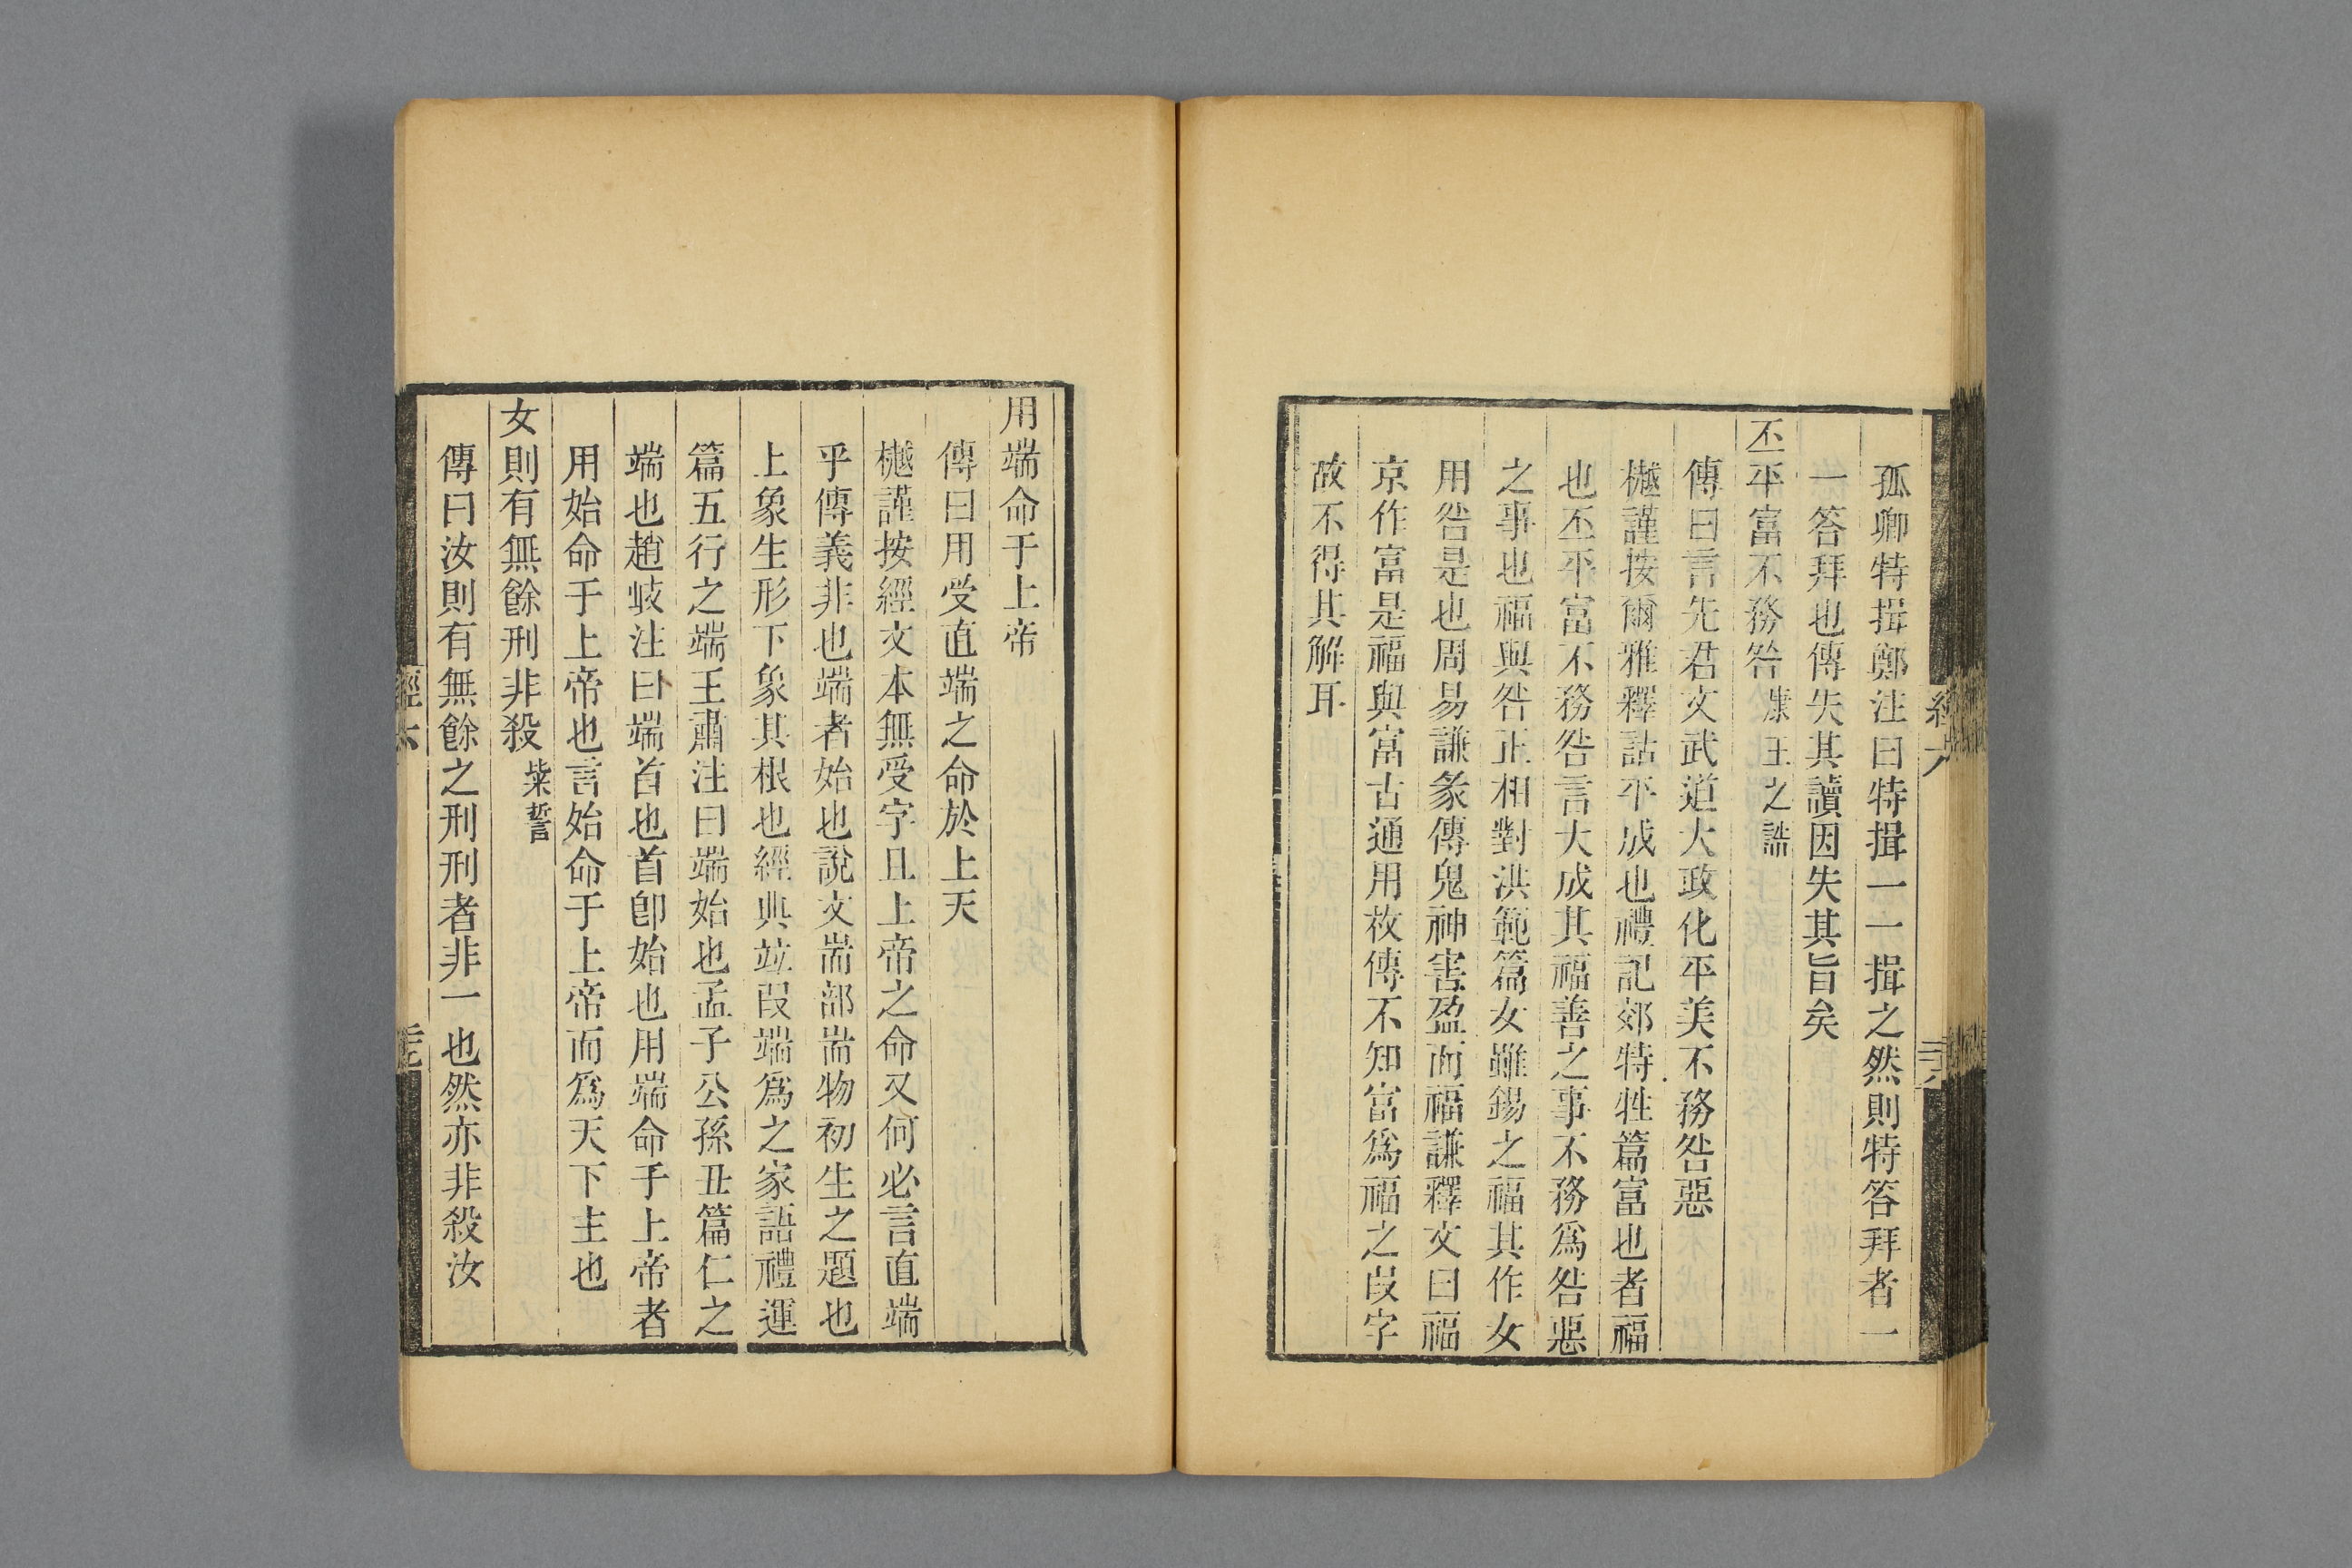 孤卿特揖鄭注曰特揖一一揖之然則特答拜者一
一答拜也傳失其讀因失其旨矣
丕平富不務咎康王之誥
傳曰言先君文武道大政化平美不務咎惡
樾謹按爾雅釋詁平成也禮記郊特牲篇富也者福
也丕平富不務咎言大成其福善之事不務爲咎惡
之事也福與咎正相對洪範篇女雖錫之福其作女
用咎是也周易謙彖傳鬼神害盈而福謙釋文曰福
京作富是福與富古通用故傳不知富爲福之叚字
故不得其解耳
用端命于上帝
傳曰用受直端之命於上天
樾謹按經文本無受字且上帝之命又何必言直端
乎傳義非也端者始也說文耑部耑物初生之題也
上象生形下象其根也經典竝叚端爲之家語禮運
篇五行之端王肅注曰端始也孟子公孫丑篇仁之
端也趙岐注曰端首也首卽始也用端命于上帝者
用始命于上帝也言始命于上帝而爲天下主也
女則有無餘刑非殺粊誓
傳曰汝則有無餘之刑刑者非一也然亦非殺汝
經六